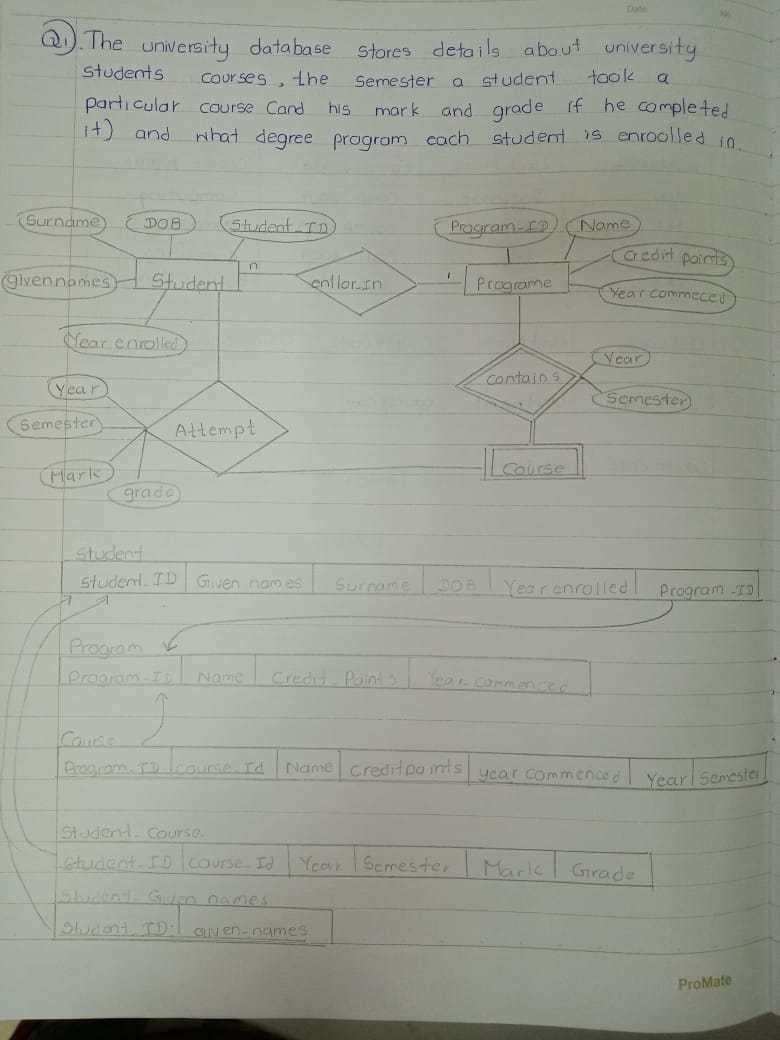 Date
No
Q1). The university database stores details about university
students courses, the semester a student took a
particular course Cand his mark and grade if he completed
it) and what degree program each student is enroolled in.
Surname DOB Student_ID Program-ID Name
givennames Student n enllor_In 1 Programe Credit points
Year commeced
Year enrolled
Year contains Year
Semester Attempt Semester
Mark grade Course
Student
Student_ID Given names Surname DOB Year enrolled Program-ID
Program
Program-ID Name Credit_Points Year commenced
Course
Program_ID course_Id Name creditpoints year commenced Year Semester
Student_course.
Student_ID course_Id Year Semester Mark Grade
Student_Given names
Student_ID. given-names
ProMate